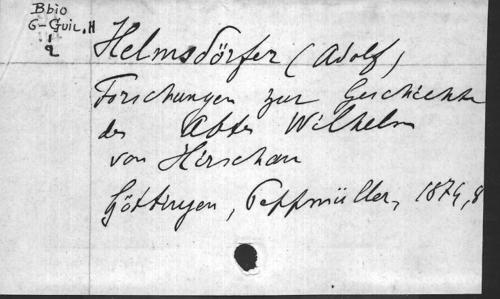 Bbio
G-Guil.H
1
2
Helmsdörfer (Adolf)
Forschungen zur Geschichte
des Abtes Wilhelm
von Hirschau
Göttingen, Peppmüller, 1874, 8